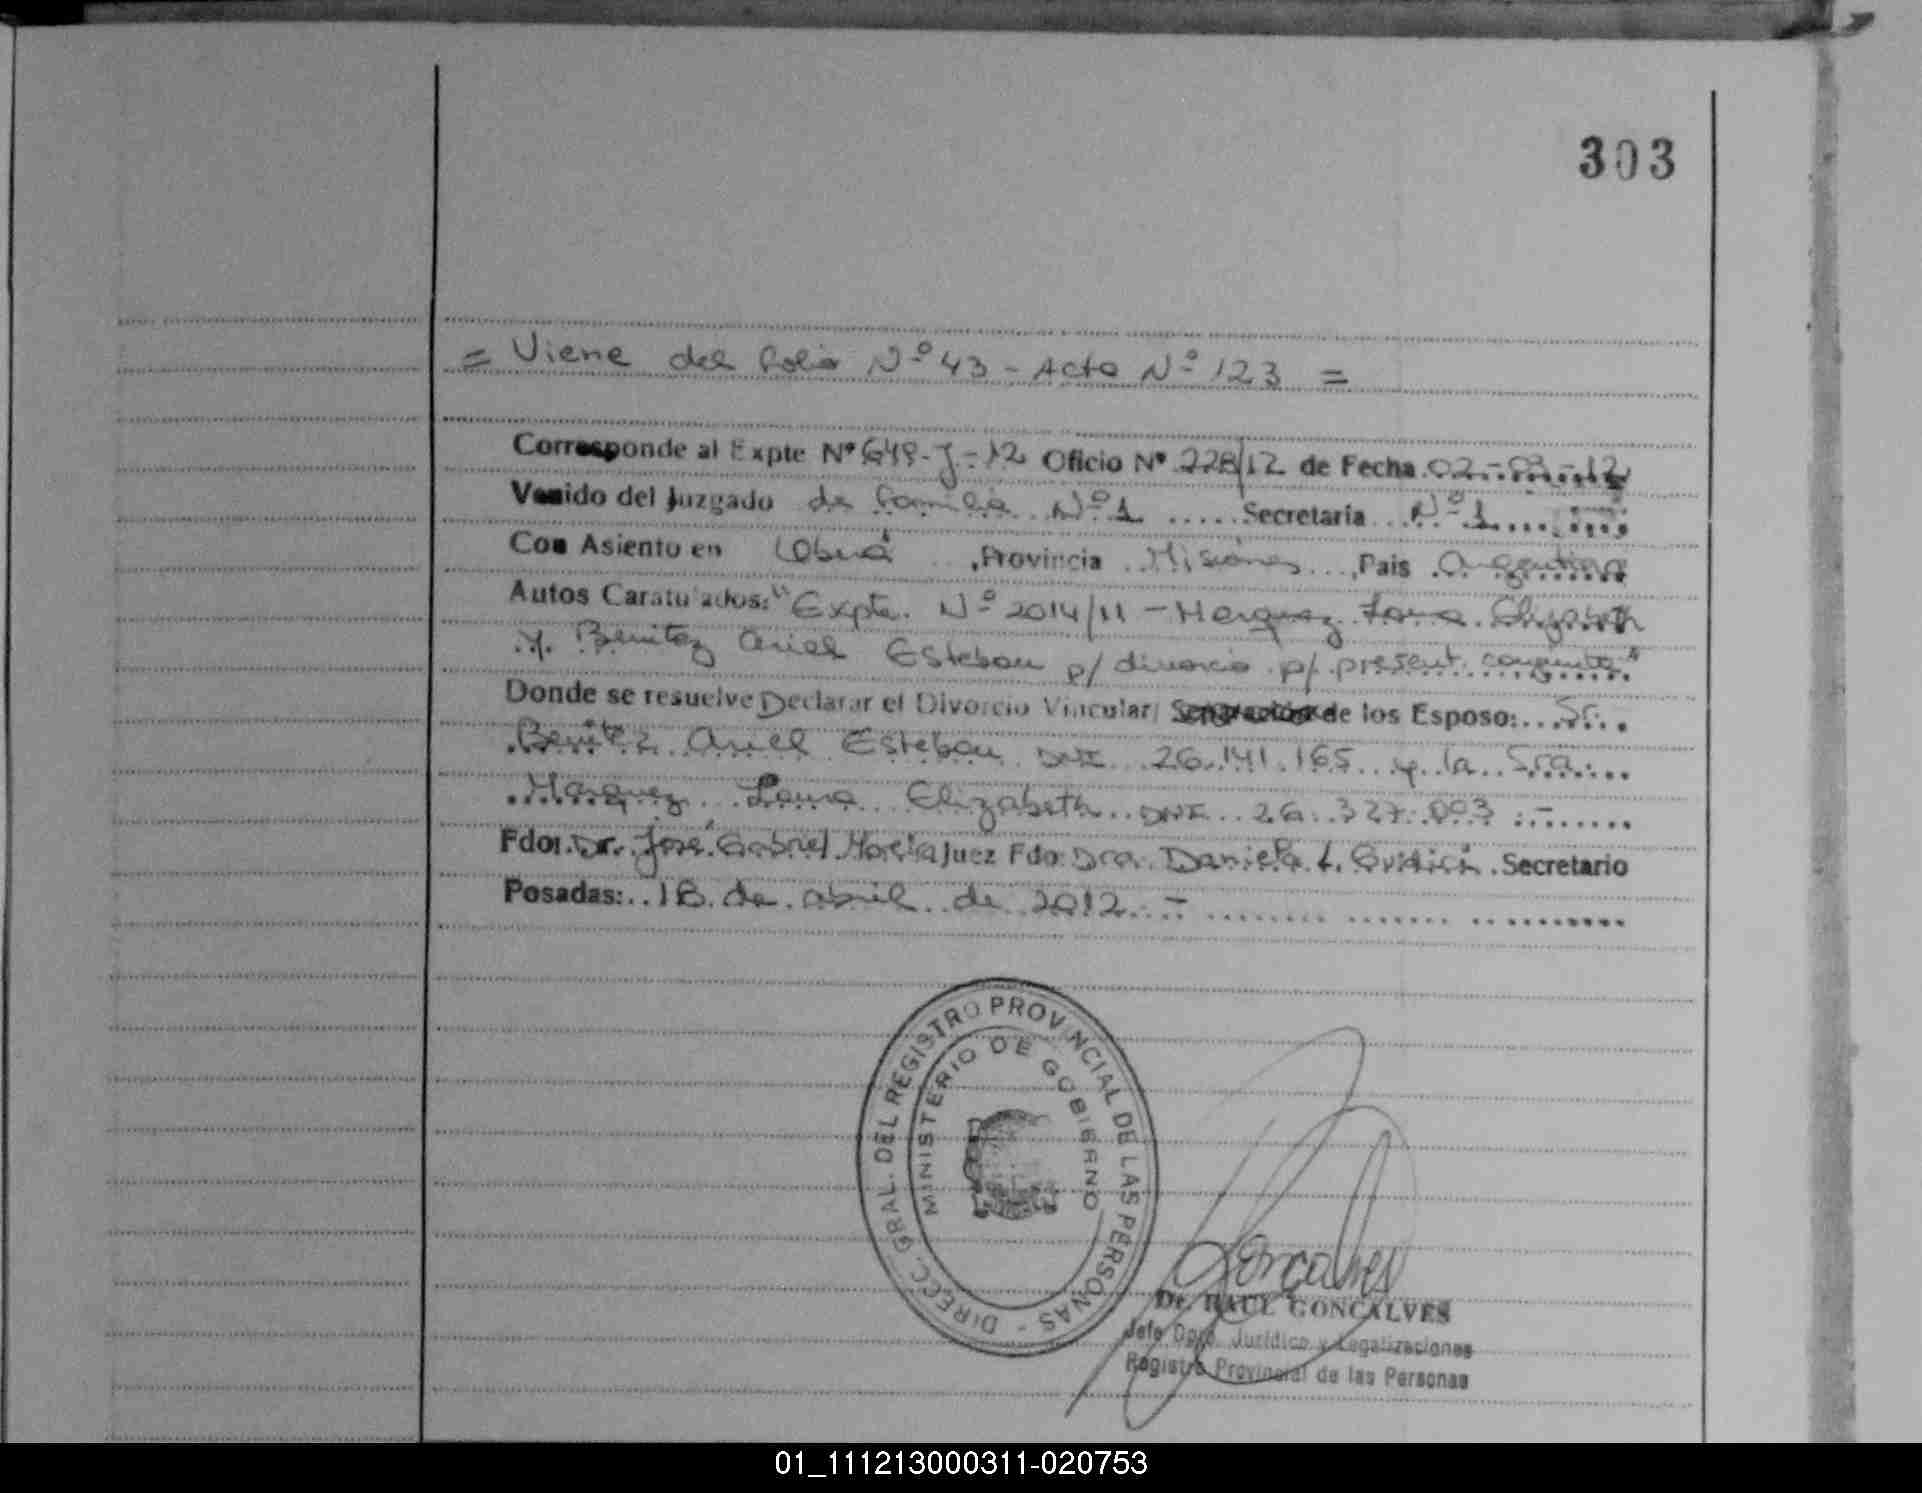 303
= Viene del folio Nº 43 - Acta Nº 123 =
Corresponde al Expte Nº 649-J-12 Oficio Nº 228/12 de Fecha 02-03-12
Venido del Juzgado de Familia Nº 1 ..... Secretaria ... Nº 1 ....
Con Asiento en Oberá ..., Provincia . Misiones ..., Pais Argentina
Autos Caratulados: "Expte. Nº 2014/11 - Marquez Laura Elizabeth
y Benitez Ariel Esteban p/ divorcio p/ present. conjunta"
Donde se resuelve Declarar el Divorcio Vincular/ Separación de los Esposo: ... Sr. ..
Benitez Ariel Esteban DNI 26.141.165 y la Sra. ...
Marquez Laura Elizabeth DNI 26.327.003 .-
Fdo: Dr. José Gabriel Juez Fdo: Dra. Daniela L. Secretario
Posadas: .. 18 de abril de 2012 .-
DIRECC. GRAL. DEL REGISTRO PROVINCIAL DE LAS PERSONAS -
MINISTERIO DE GOBIERNO
Goncalves
Dr. RAUL GONCALVES
Jefe Dpto. Jurídico y Legalizaciones
Registro Provincial de las Personas
01_111213000311-020753